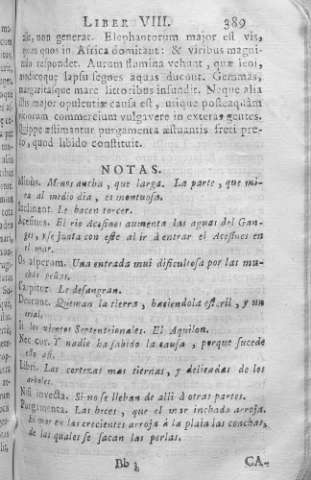 LIBER VIII. 389
ale, non generat. Elephantorum major est vis,
quam quos in Africa domitant: & viribus magni-
respondet. Aurum flumina vehunt, quæ leni,
modicoque lapsu segnes aquas ducunt. Gemmas,
margaritasque mare littoribus infundit. Neque alia
illis major opulentiæ causa est, utique postequàm
vitiorum commercium vulgavere in exteras gentes.
Quippe æstimantur purgamenta æstuantis freti pre-
tio, quod libido constituit.
NOTAS.
Minùs. Menos ancha, que larga. La parte, que mi-
ra al medio dia, es montuosa.
Inclinant. Le hacen torcer.
Acesines. El rio Acesinos aumenta las aguas del Gan-
ges, y se junta con este al ir à entrar el Acesines en
el mar.
Os asperam. Una entrada mui dificultosa por las mu-
chas peñas.
Carpitur. Le desangran.
Deurunt. Queman la tierra, haciendola esteril, y un
erial.
It les vientos Septentrionales. El Aquilon.
Nec cur. Y nadie ha sabido la causa, porque sucede
esto asi.
Libri. Las cortezas mas tiernas, y delicadas de los
arboles.
Nisi invecta. Si no se lleban de alli à otras partes.
Purgamenta. Las heces, que el mar inchado arroja.
El mar en las crecientes arroja à la plaia las conchas,
de las quales se sacan las perlas.
Bb CA-